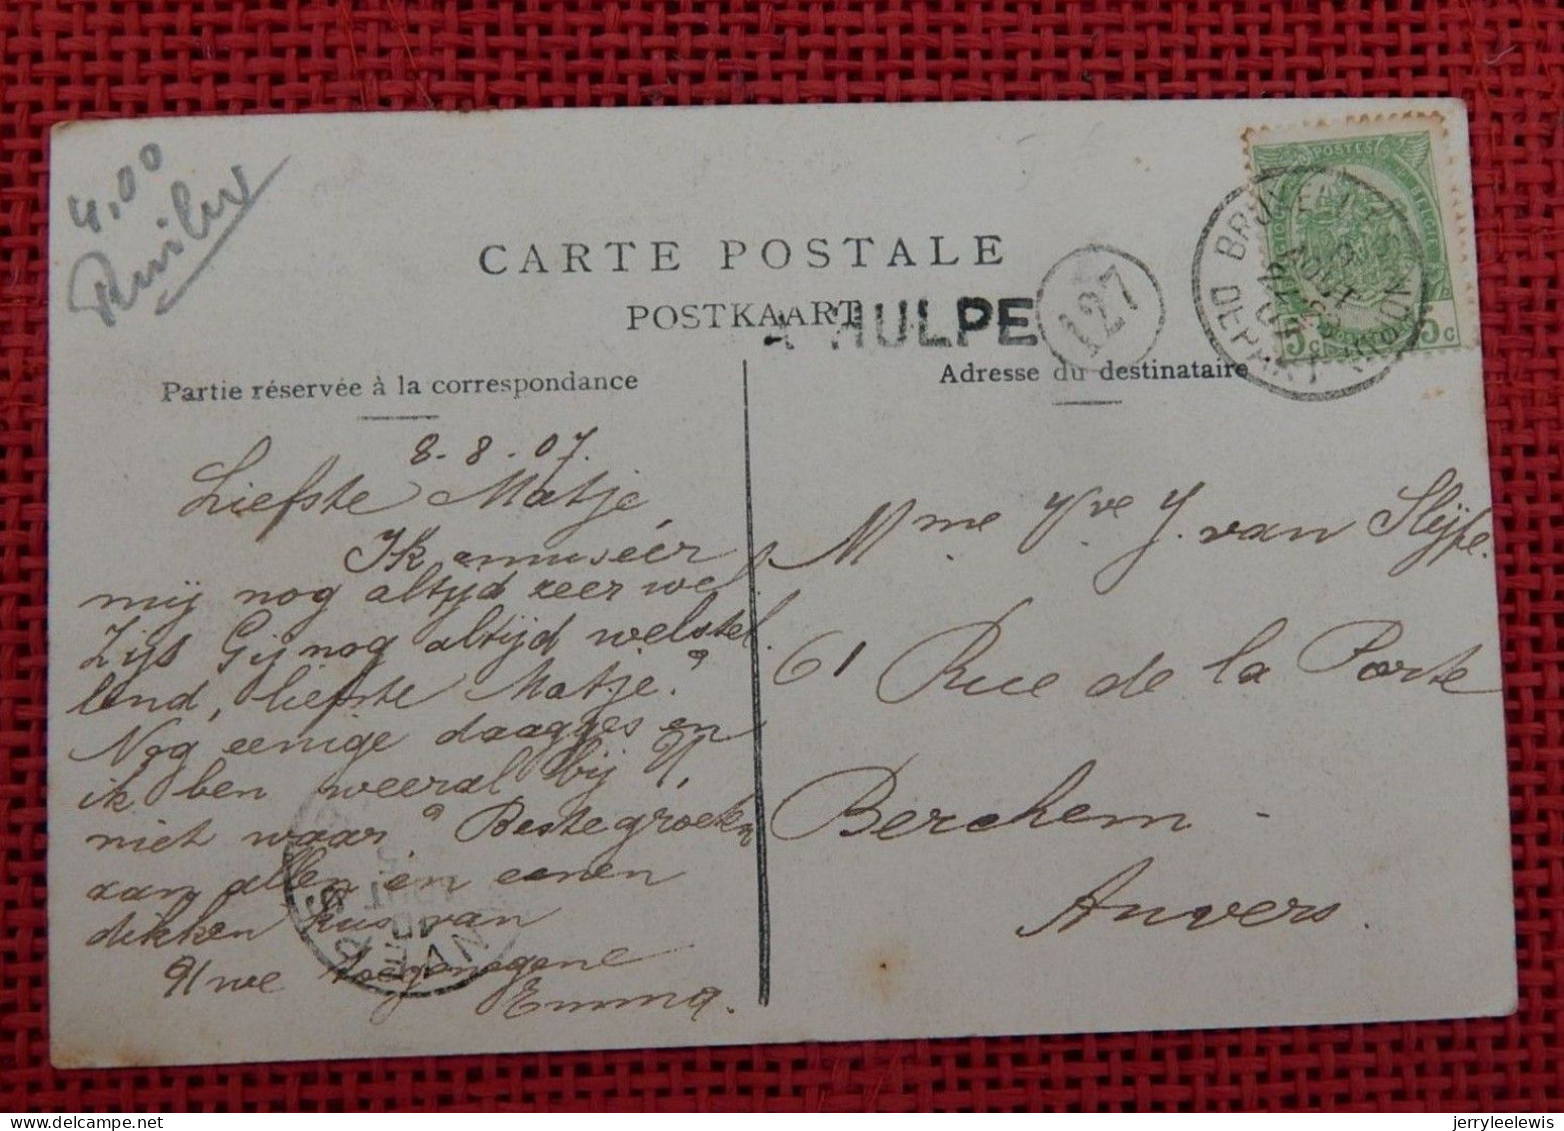 4,00
CARTE POSTALE
POSTKAART
HULPE
127
Partie réservée à la correspondance
Adresse du destinataire
POSTES
5c 5c
8-8-07.
Liefste Matje,
Ik amuséér
mij nog altijd zeer wel
Zijs Gij nog altijd welstel
lend, liefste Matje?
Nog eenige daagges en
ik ben weeral bij U,
niet waar? Bestegroeten
aan allen en eenen
dikken kus van
Uwe toegenegene
Emma.
Mme Vve J. van Slijpe.
61 Rue de la Porte
Berchem -
Anvers.
jerryleelewis